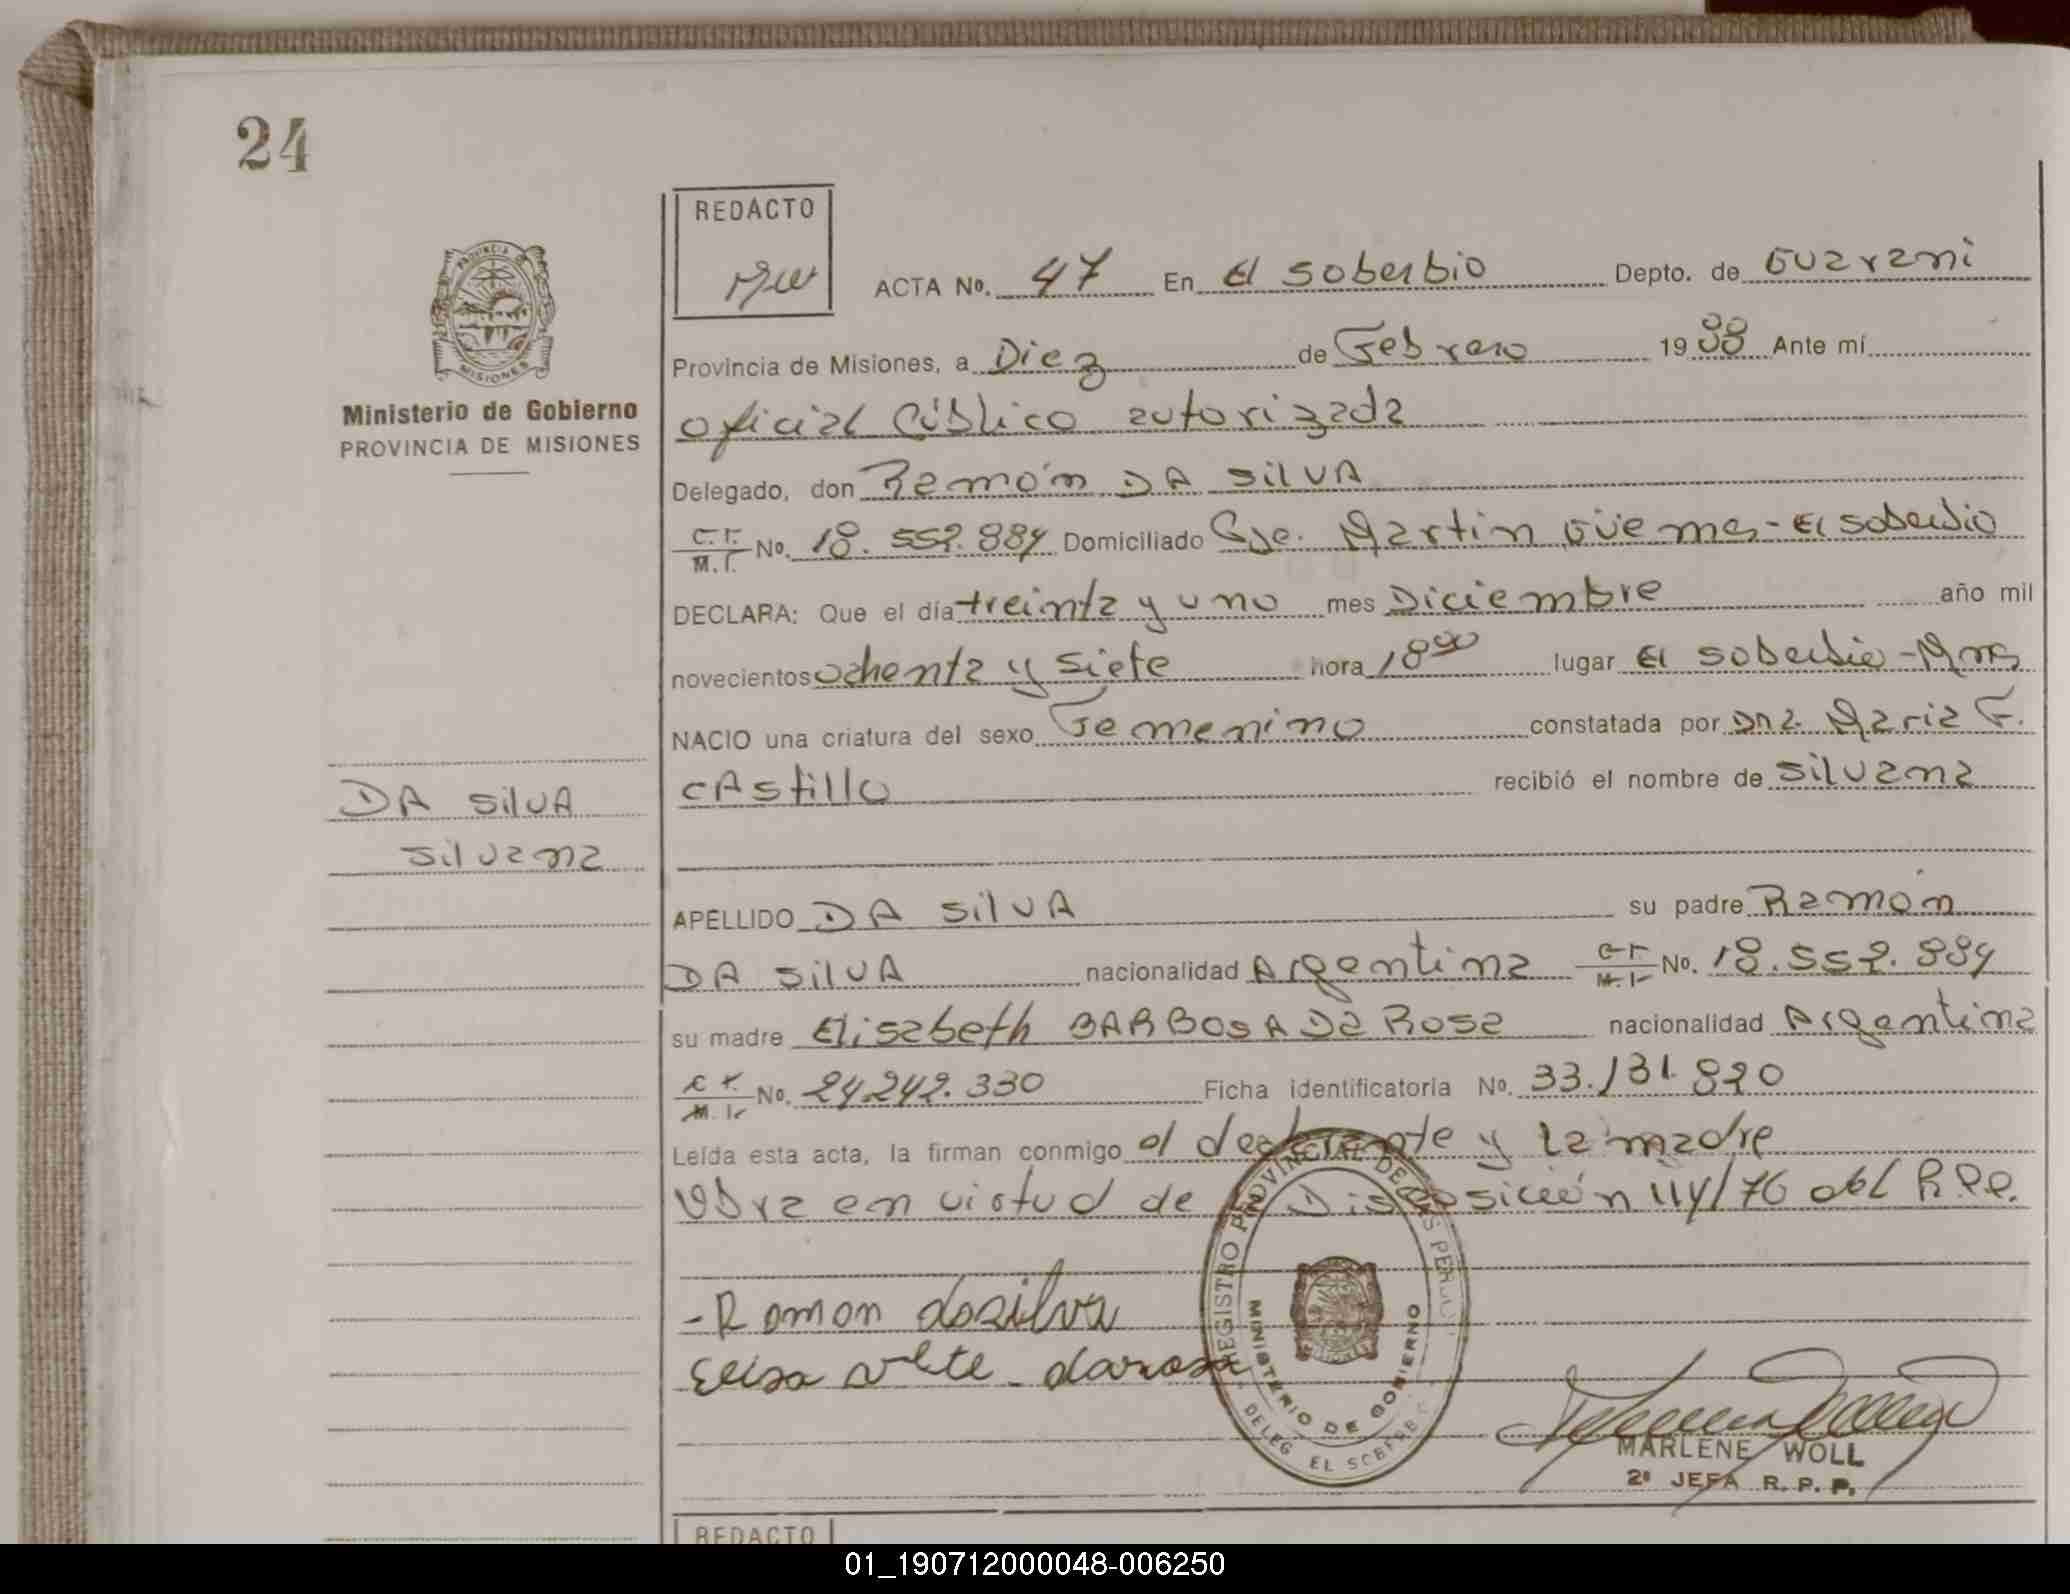 24
REDACTO
PROVINCIA DE
MISIONES
Ministerio de Gobierno
PROVINCIA DE MISIONES
ACTA No. 47 En El Soberbio Depto. de Guarani
Provincia de Misiones, a Diez de Febrero 1988 Ante mí
oficial Público autorizada
Delegado, don Ramón DA SilVA
C.I. M.I. No. 18.552.884 Domiciliado Gje. Martin Güemes - El soberbio
DECLARA: Que el día treinta y uno mes Diciembre año mil
novecientos ochenta y siete hora 18 00 lugar El soberbio - Mnes
NACIO una criatura del sexo Femenino constatada por Dña. Maria F.
CAstillo recibió el nombre de Silvana
DA SilVA
Silvana
APELLIDO DA SilVA su padre Ramón
DA SilVA nacionalidad Argentina C.I. M.I. No. 18.552.884
su madre Elisabeth BARBOSA Da Rosa nacionalidad Argentina
C.I. M.I. No. 24.242.330 Ficha identificatoria No. 33.131.820
Leída esta acta, la firman conmigo el declarante y la madre
Obra en virtud de Disposición 114/76 del R.P.P.
- Ramon dasilva
darosa
REGISTRO PROVINCIAL DE LAS PERSO
MINISTERIO DE GOBIERNO
DELEG. EL SOBERB
MARLENE WOLL
2ª JEFA R. P. P.
REDACTO
01_190712000048-006250